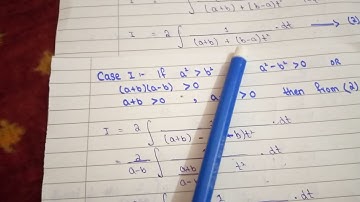 (a+b) + (b-a)t²
I = 2 ∫ 1 / (a+b) + (b-a)t² · dt → (2)
Case I :- If a² > b² a² - b² > 0 OR
(a+b)(a-b) > 0
a+b > 0 , a > 0 then from (2)
I = 2 ∫ / (a+b) - -b)t² · dt
= 2 / a-b ∫ / a+b t² · dt
I = 2 dt